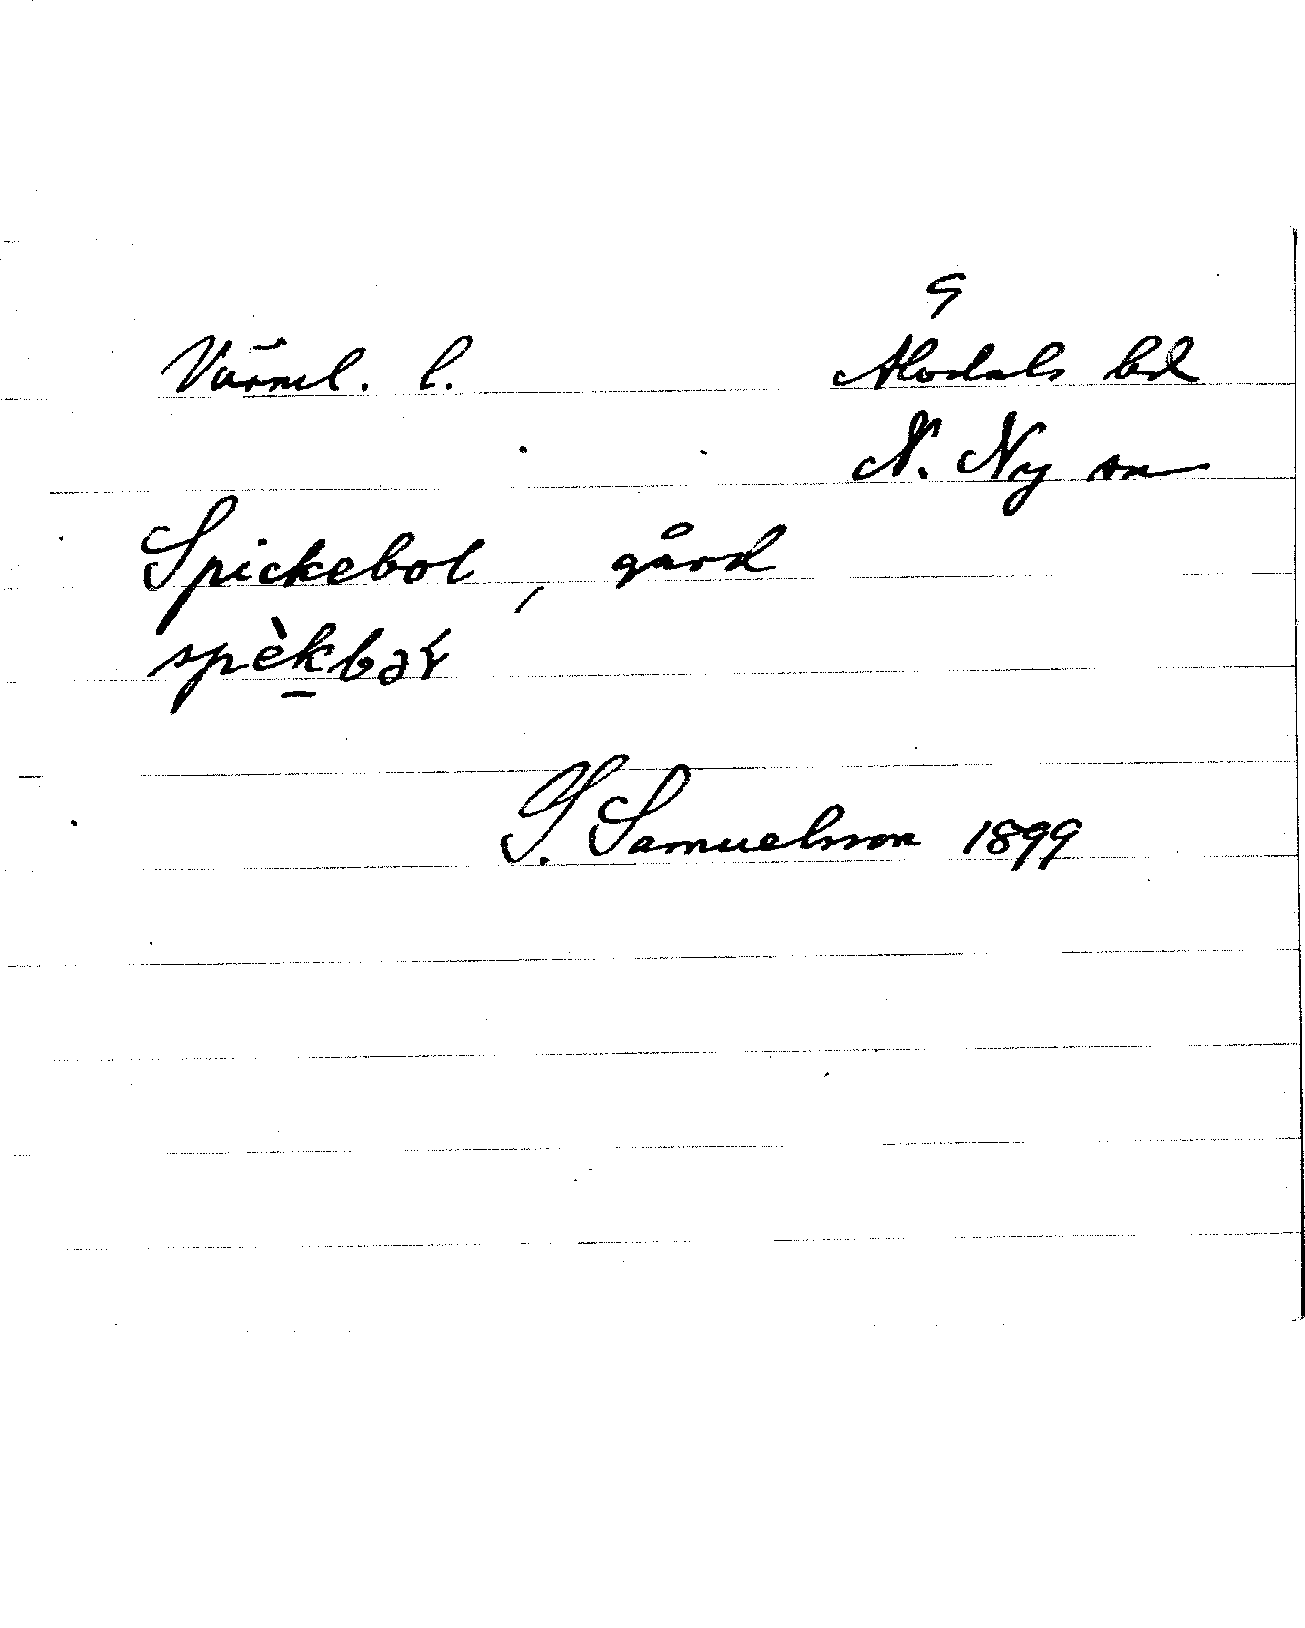 9
Värml. l. Älvdals hd
N. Ny sn
Spickebol, gård
spèk̲bəɫ
S. Samuelsson 1899